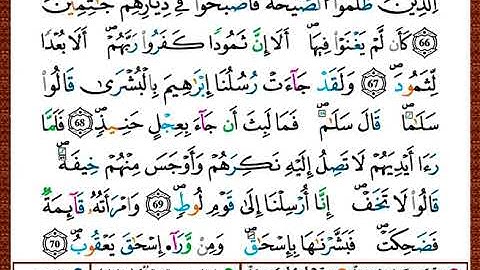 اَلذِينَ ظَلَمُوا۟ اُ۬لصَّيْحَةُ فَأَصْبَحُوا۟ فِي دِيٰ۪رِهِمْ جَٰثِمِينَ
66 كَأَن لَّمْ يَغْنَوْا۟ فِيهَآ أَلَآ إِنَّ ثَمُودًا كَفَرُوا۟ رَبَّهُمْ أَلَا بُعْدًا
لِّثَمُودَ 67 وَلَقَدْ جَآءَتْ رُسُلُنَآ إِبْرَٰهِيمَ بِالْبُشْرَىٰ قَالُوا۟
سَلَٰمًا قَالَ سَلَٰمٌ فَمَا لَبِثَ أَن جَآءَ بِعِجْلٍ حَنِيذٍ 68 فَلَمَّا
رَءَآ أَيْدِيَهُمْ لَا تَصِلُ إِلَيْهِ نَكِرَهُمْ وَأَوْجَسَ مِنْهُمْ خِيفَةً
قَالُوا۟ لَا تَخَفْ إِنَّآ أُرْسِلْنَآ إِلَىٰ قَوْمِ لُوطٍ 69 وَامْرَأَتُهُۥ قَآئِمَةٌ
فَضَحِكَتْ فَبَشَّرْنَٰهَا بِإِسْحَٰقَ وَمِنْ وَرَآءِ اِ۪سْحَٰقَ يَعْقُوبُ 70